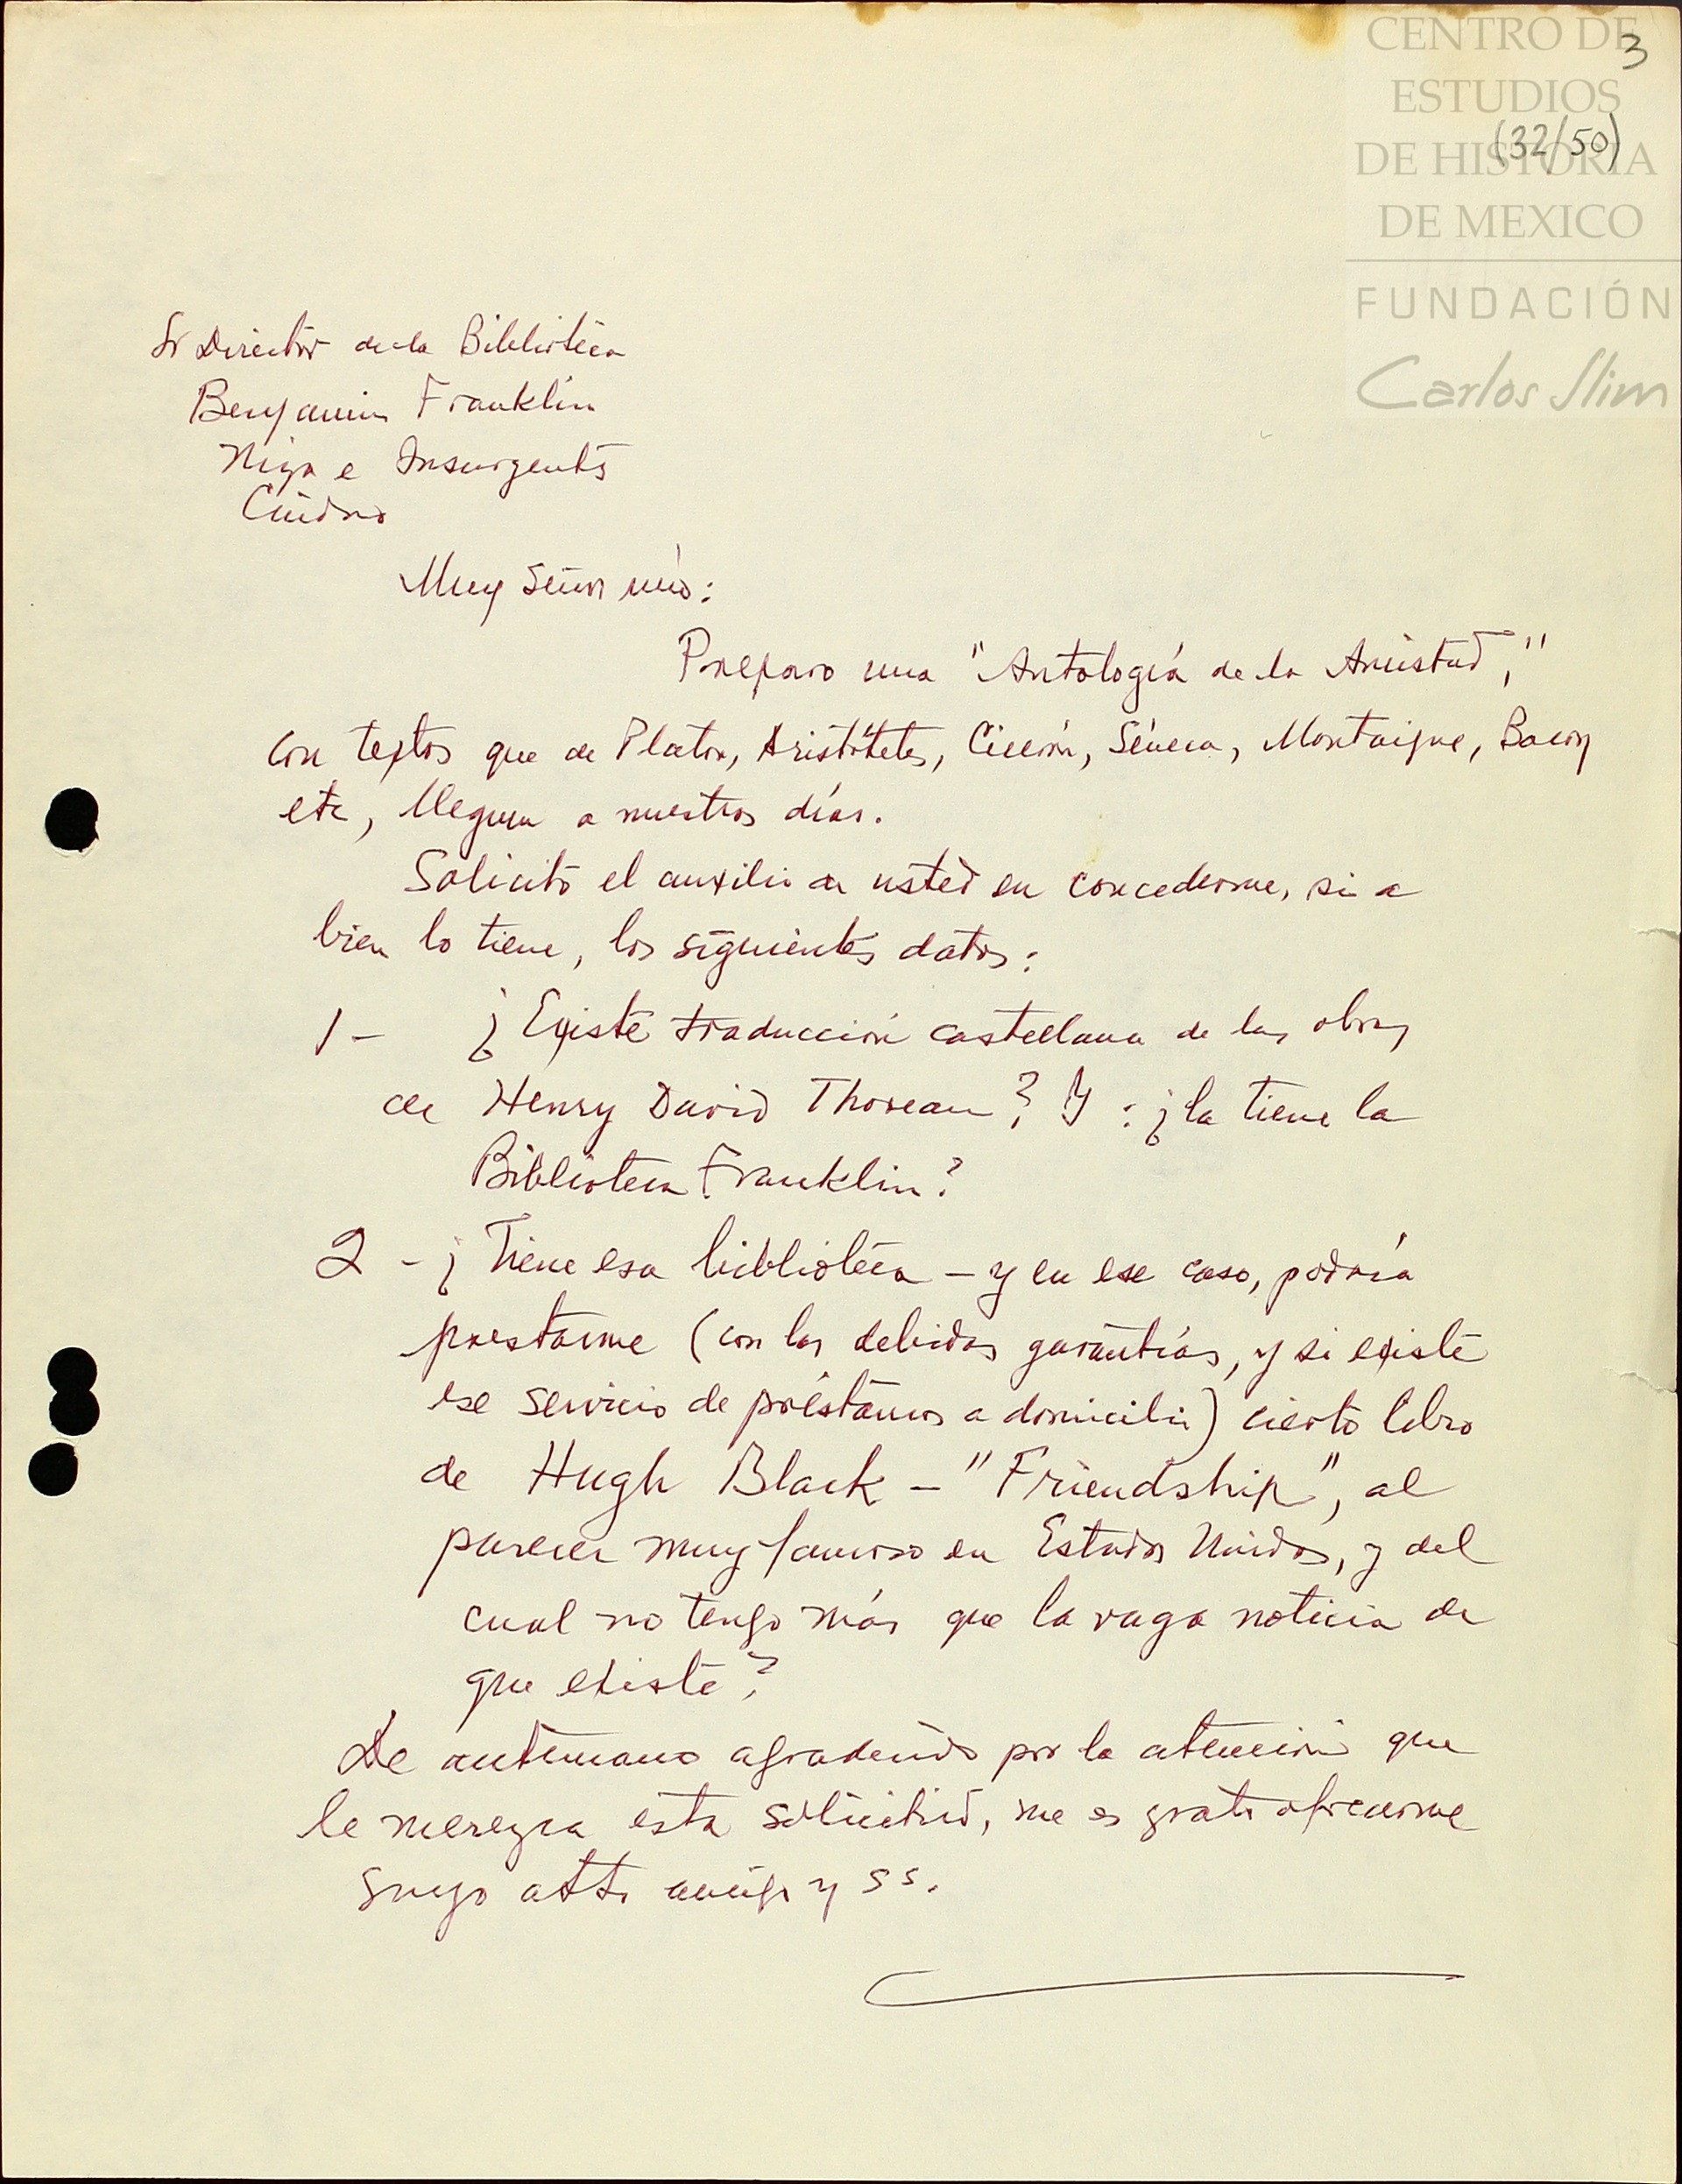 CENTRO DE
ESTUDIOS
DE HISTORIA
DE MEXICO
FUNDACIÓN
Carlos Slim
3
(32/50)
Sr Director de la Biblioteca
Benjamin Franklin
Niza e Insurgentes
Ciudad
Muy señor mío:
Preparo una "Antología de la Amistad,"
con textos que de Platon, Aristóteles, Cicerón, Séneca, Montaigne, Bacon
etc, lleguen a nuestros días.
Solicito el auxilio de usted en concederme, si a
bien lo tiene, los siguientes datos:
1- ¿Existe traducción castellana de las obras
de Henry David Thoreau? Y: ¿la tiene la
Biblioteca Franklin?
2 - ¿Tiene esa biblioteca - y en ese caso, podría
prestarme (con las debidas garantías, y si existe
ese servicio de préstamos a domicilio) cierto libro
de Hugh Black - "Friendship", al
parecer muy famoso en Estados Unidos, y del
cual no tengo más que la vaga noticia de
que existe?
De antemano agradecido por la atención que
le merezca esta solicitud, me es grato ofrecerme
suyo atto amigo y ss.